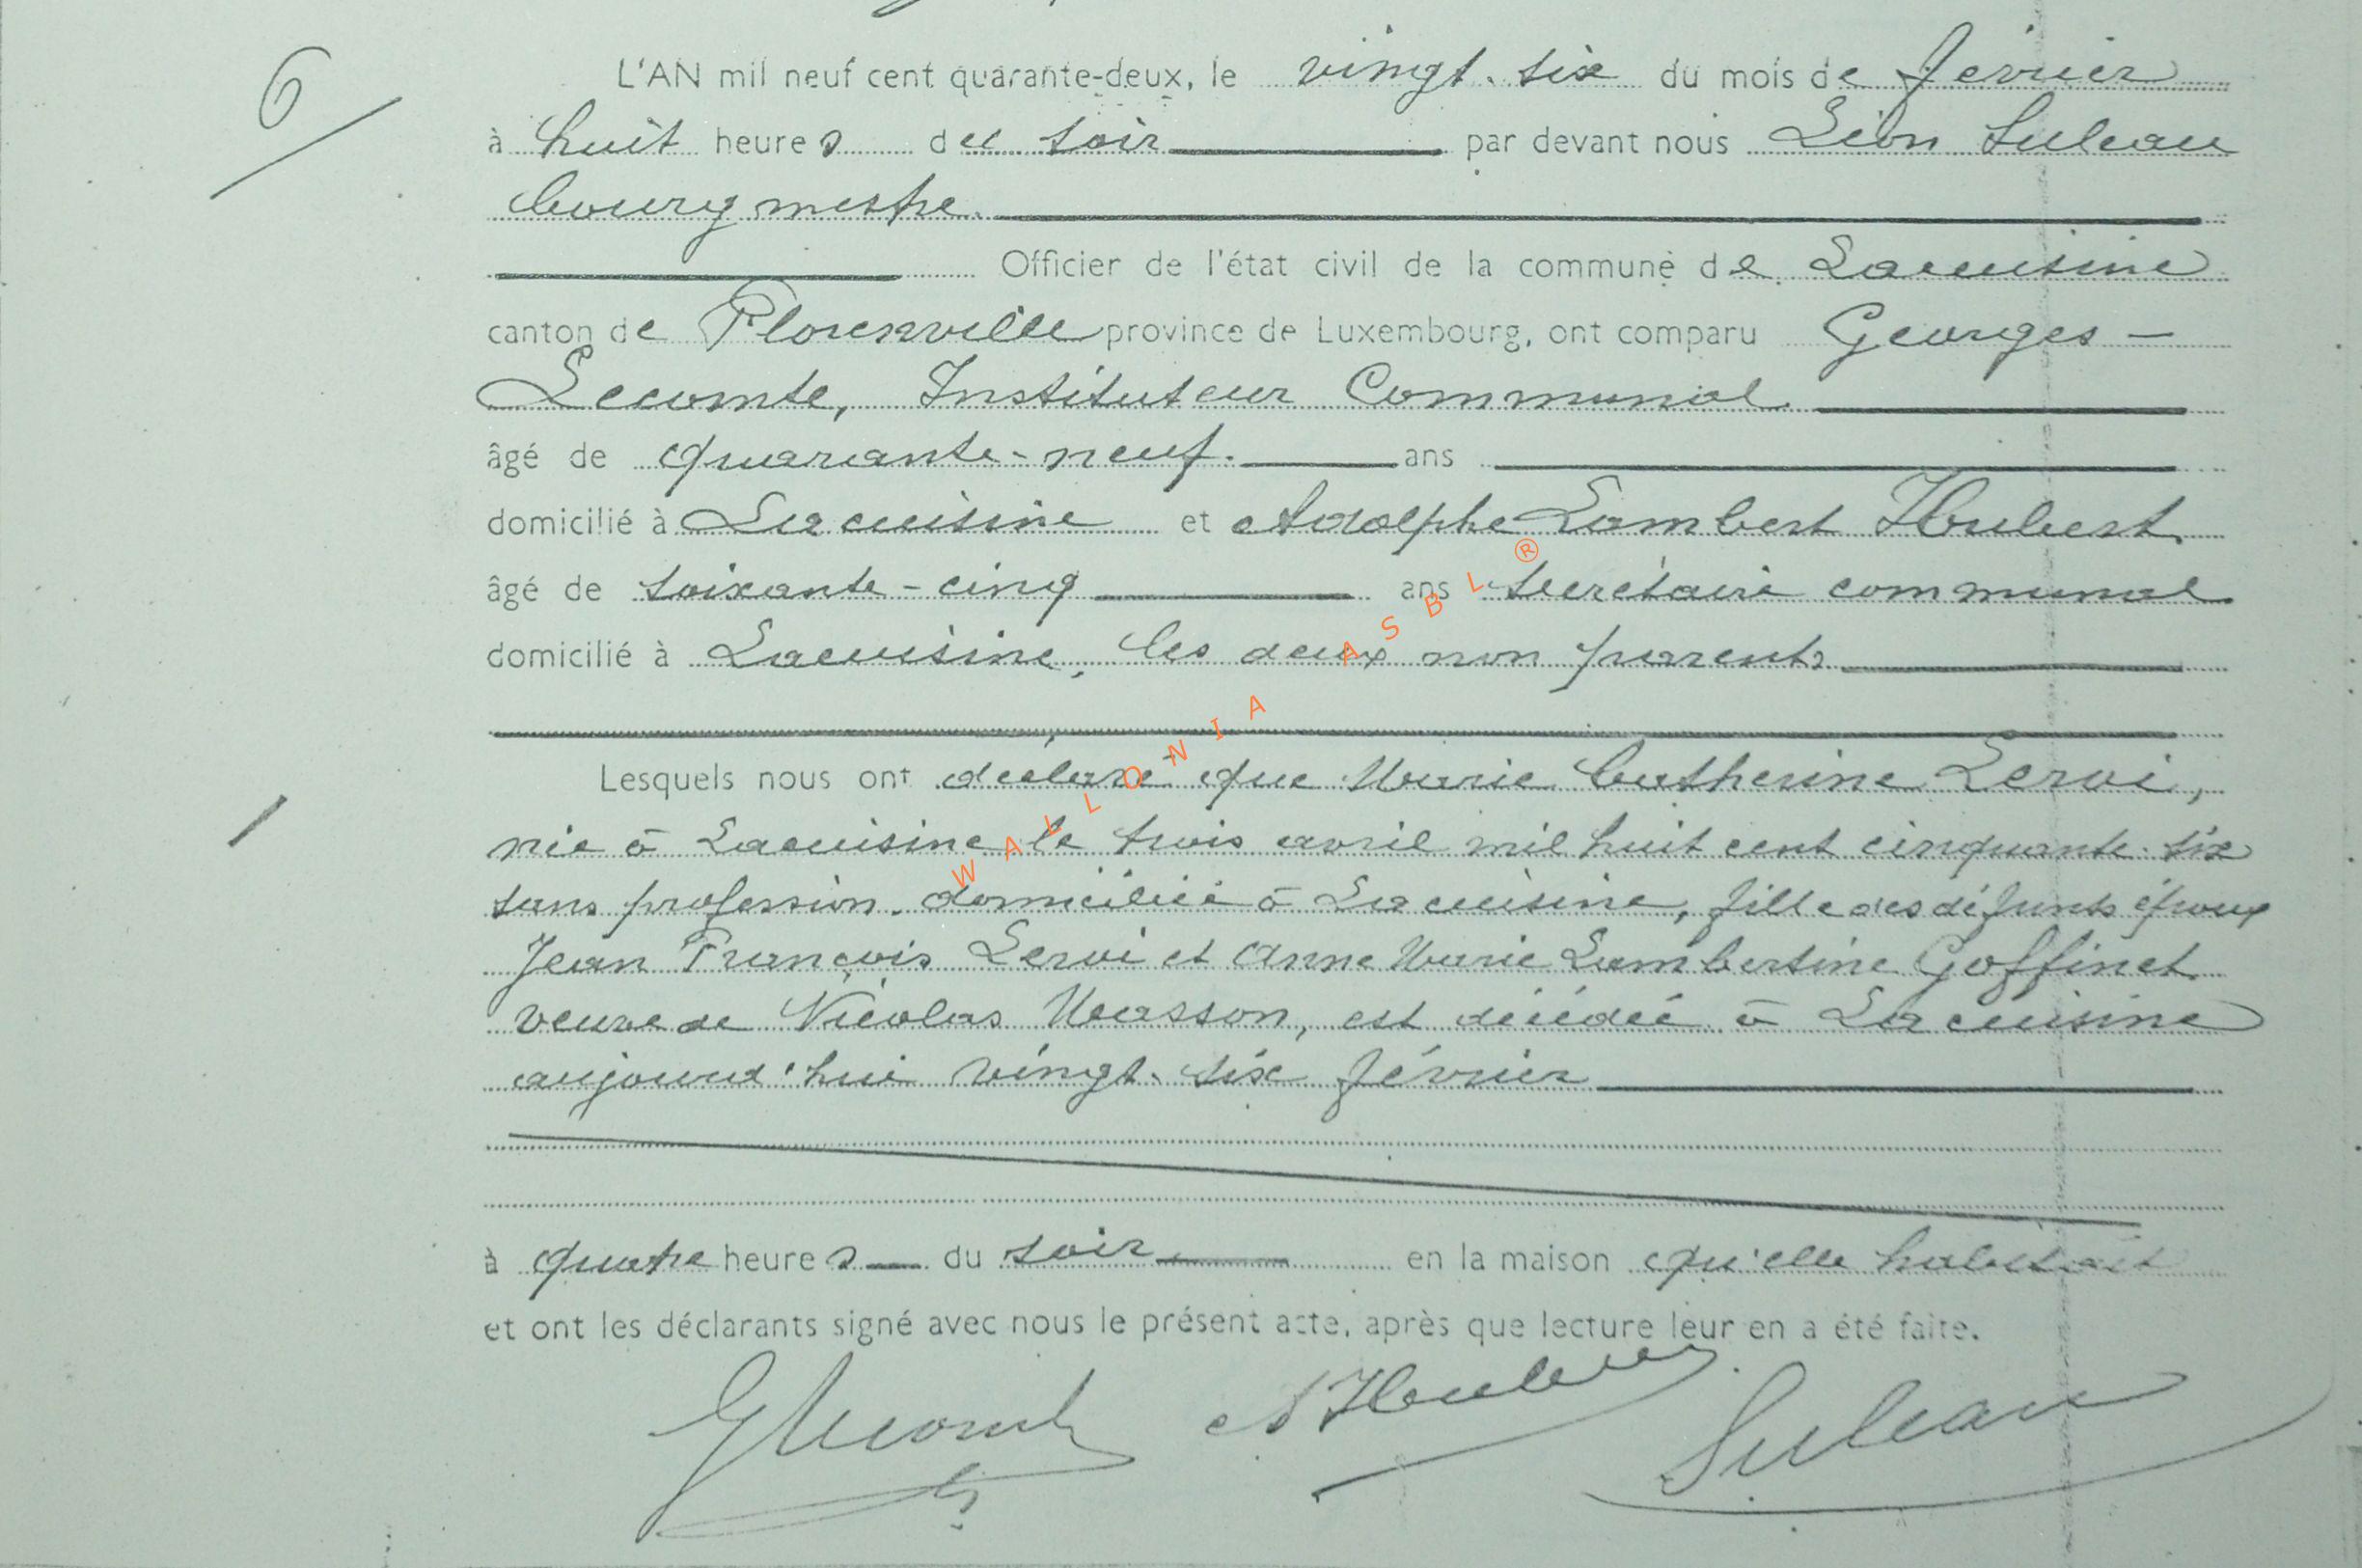 6
L'AN mil neuf cent quarante-deux, le vingt-six du mois de février
à huit heures du soir par devant nous Léon Suleau
bourgmestre.
Officier de l'état civil de la commune de Lacuisine
canton de Florenville province de Luxembourg, ont comparu Georges -
Lecomte, Instituteur Communal
âgé de quarante-neuf. ans
domicilié à Lacuisine et Adolphe Lambert Hubert
âgé de soixante-cinq ans secrétaire communal
domicilié à Lacuisine, les deux non parents
Lesquels nous ont déclaré que Marie Catherine Leroi,
née à Lacuisine le trois avril mil huit cent cinquante-six
sans profession. domiciliée à Lacuisine, fille des défunts époux
Jean François Leroi et Anne Marie Lambertine Goffinet
veuve de Nicolas Masson, est décédée à Lacuisine
aujourd'hui vingt-six février
à quatre heures du soir en la maison qu'elle habitait
et ont les déclarants signé avec nous le présent acte, après que lecture leur en a été faite.
GLecomte AHubert Suleau
WALLONIA ASBL ®